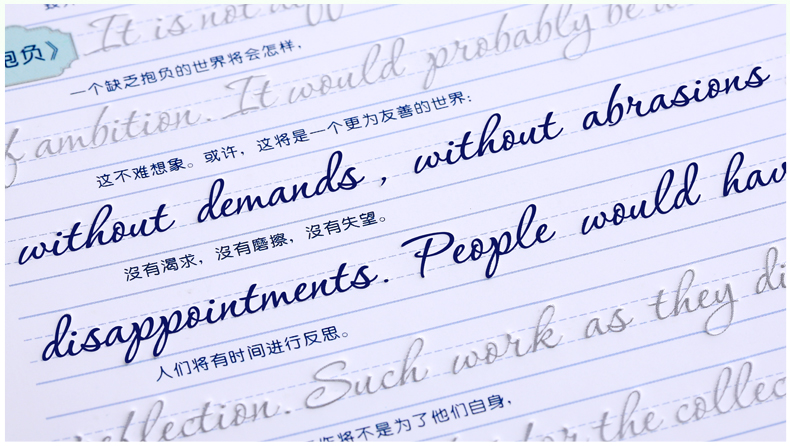 It is not
抱负》
一个缺乏抱负的世界将会怎样，
f ambition. It would probably be
这不难想象。或许，这将是一个更为友善的世界：
without demands, without abrasions
沒有渴求，沒有磨擦，沒有失望。
disappointments. People would hav
人们将有时间进行反思。
eflection. Such work as they di
将不是为了他们自身，
for the collec